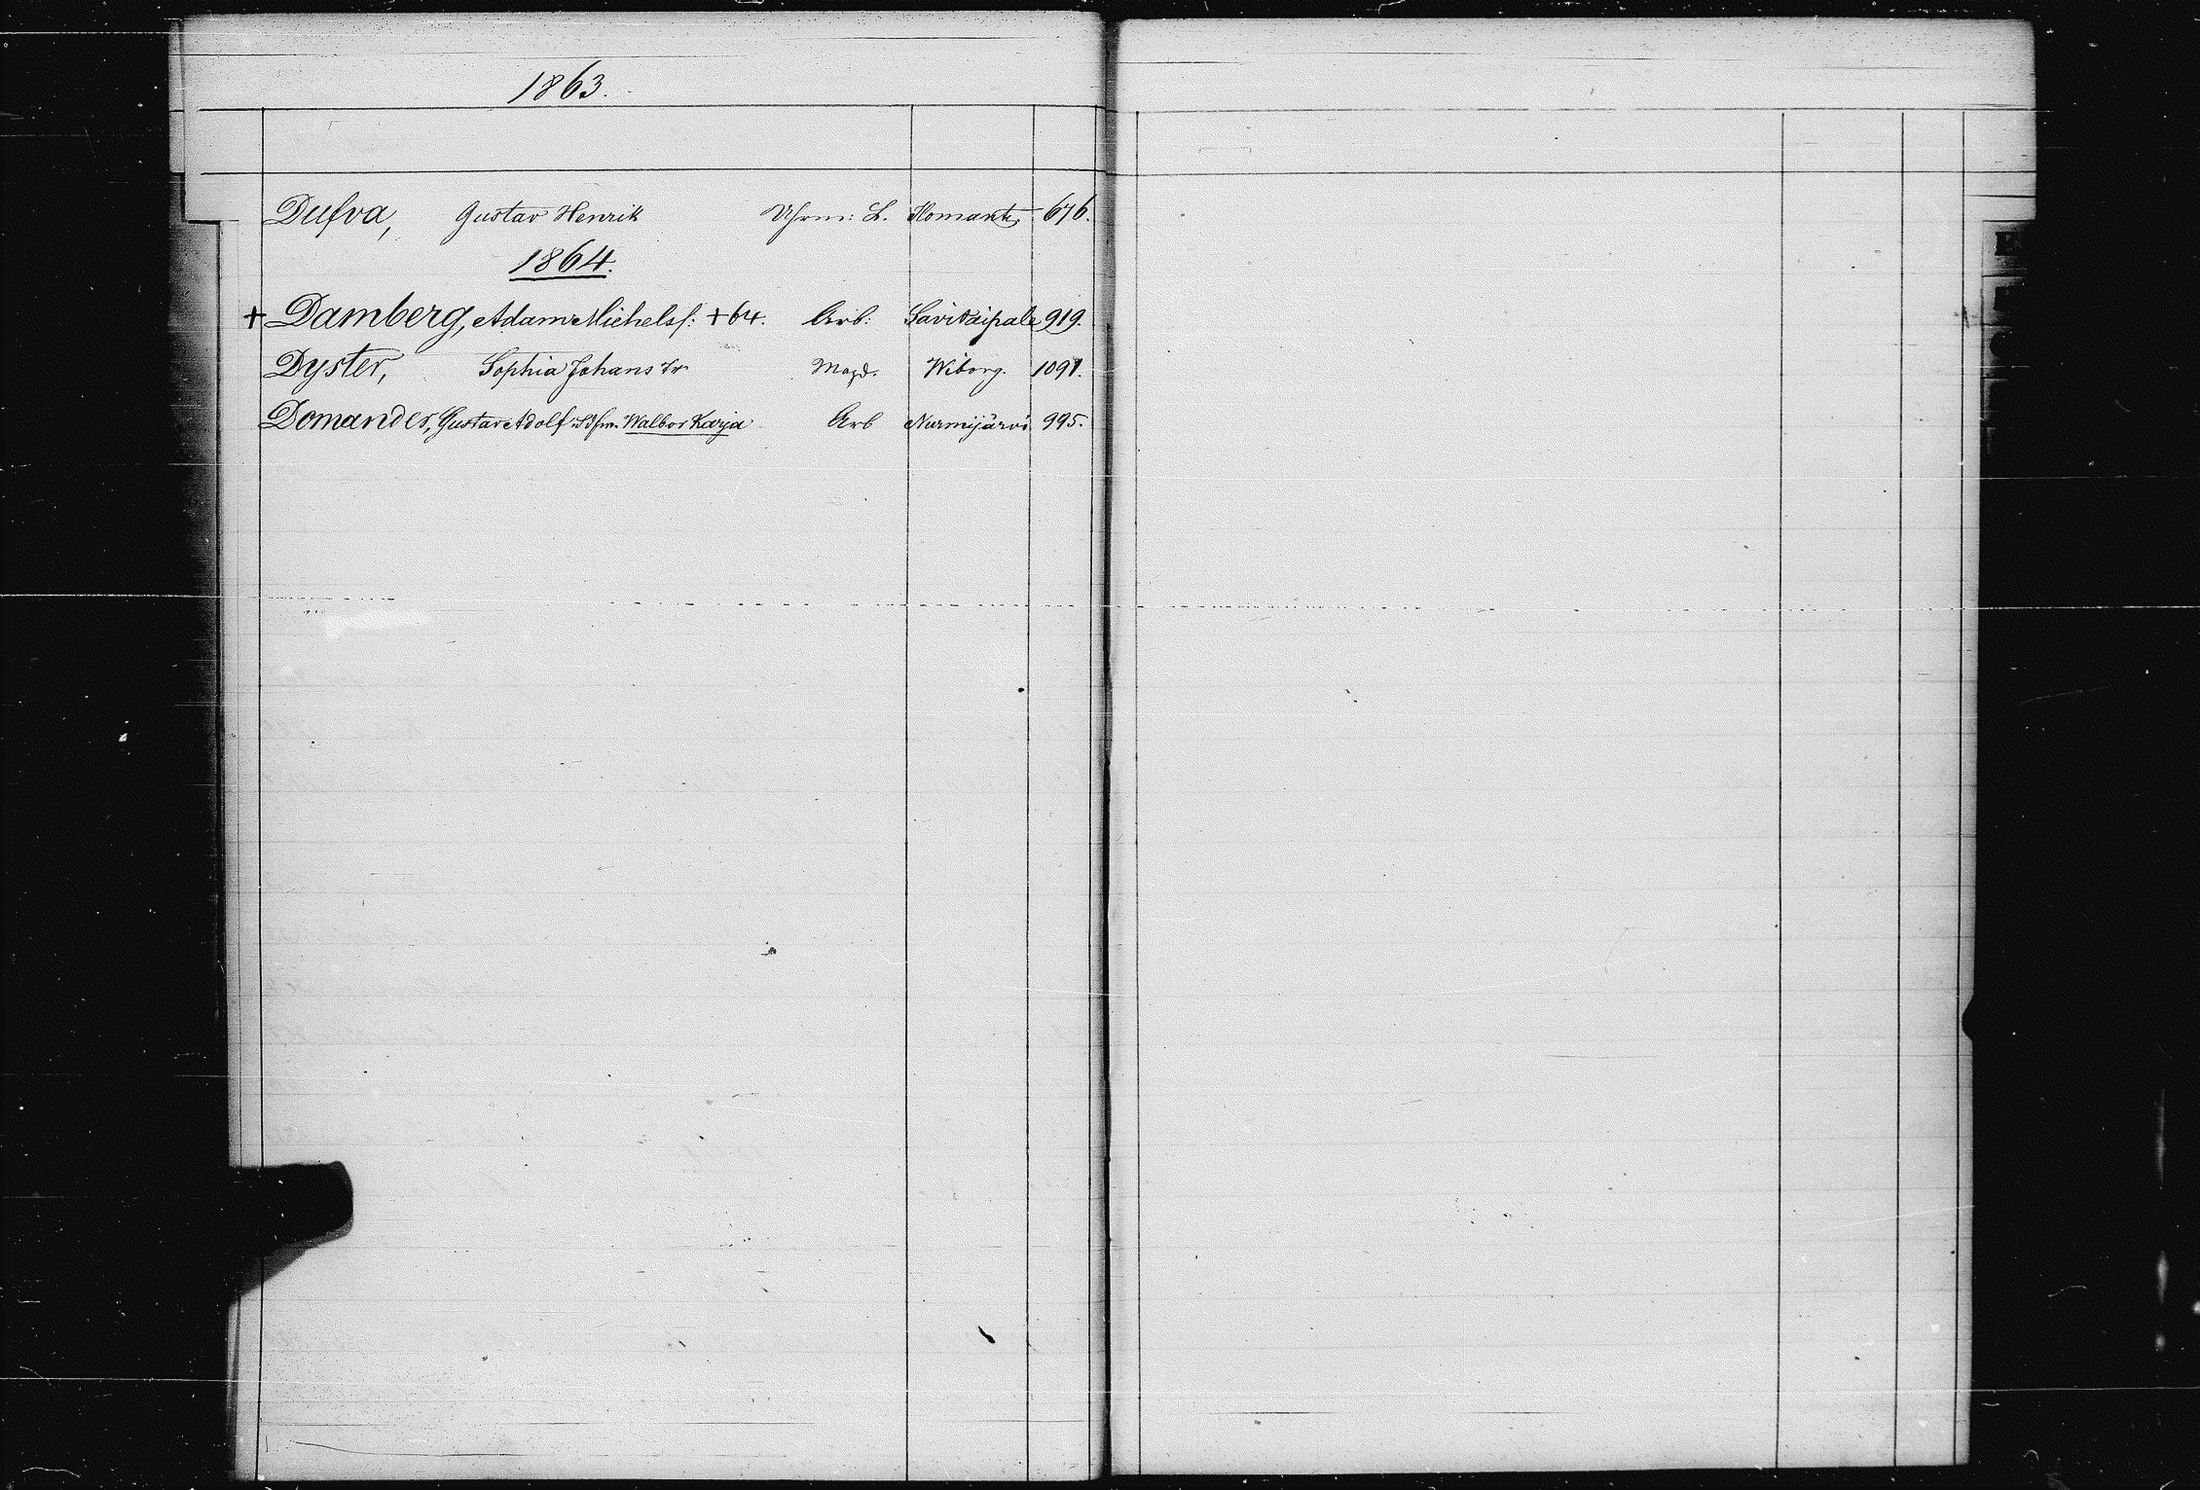 1863.
Dufva, Gustav Henrik Uhrm: L. Ilomants 676.
1864.
+ Damberg, Adam Michelsf: +64. Arb: Savitaipale 919.
Dyster, Sophia Johans dr Magd. Wiborg. 1091.
Domander, Gustav Adolf Walbor Karja Arb Nurmijärvi 995.